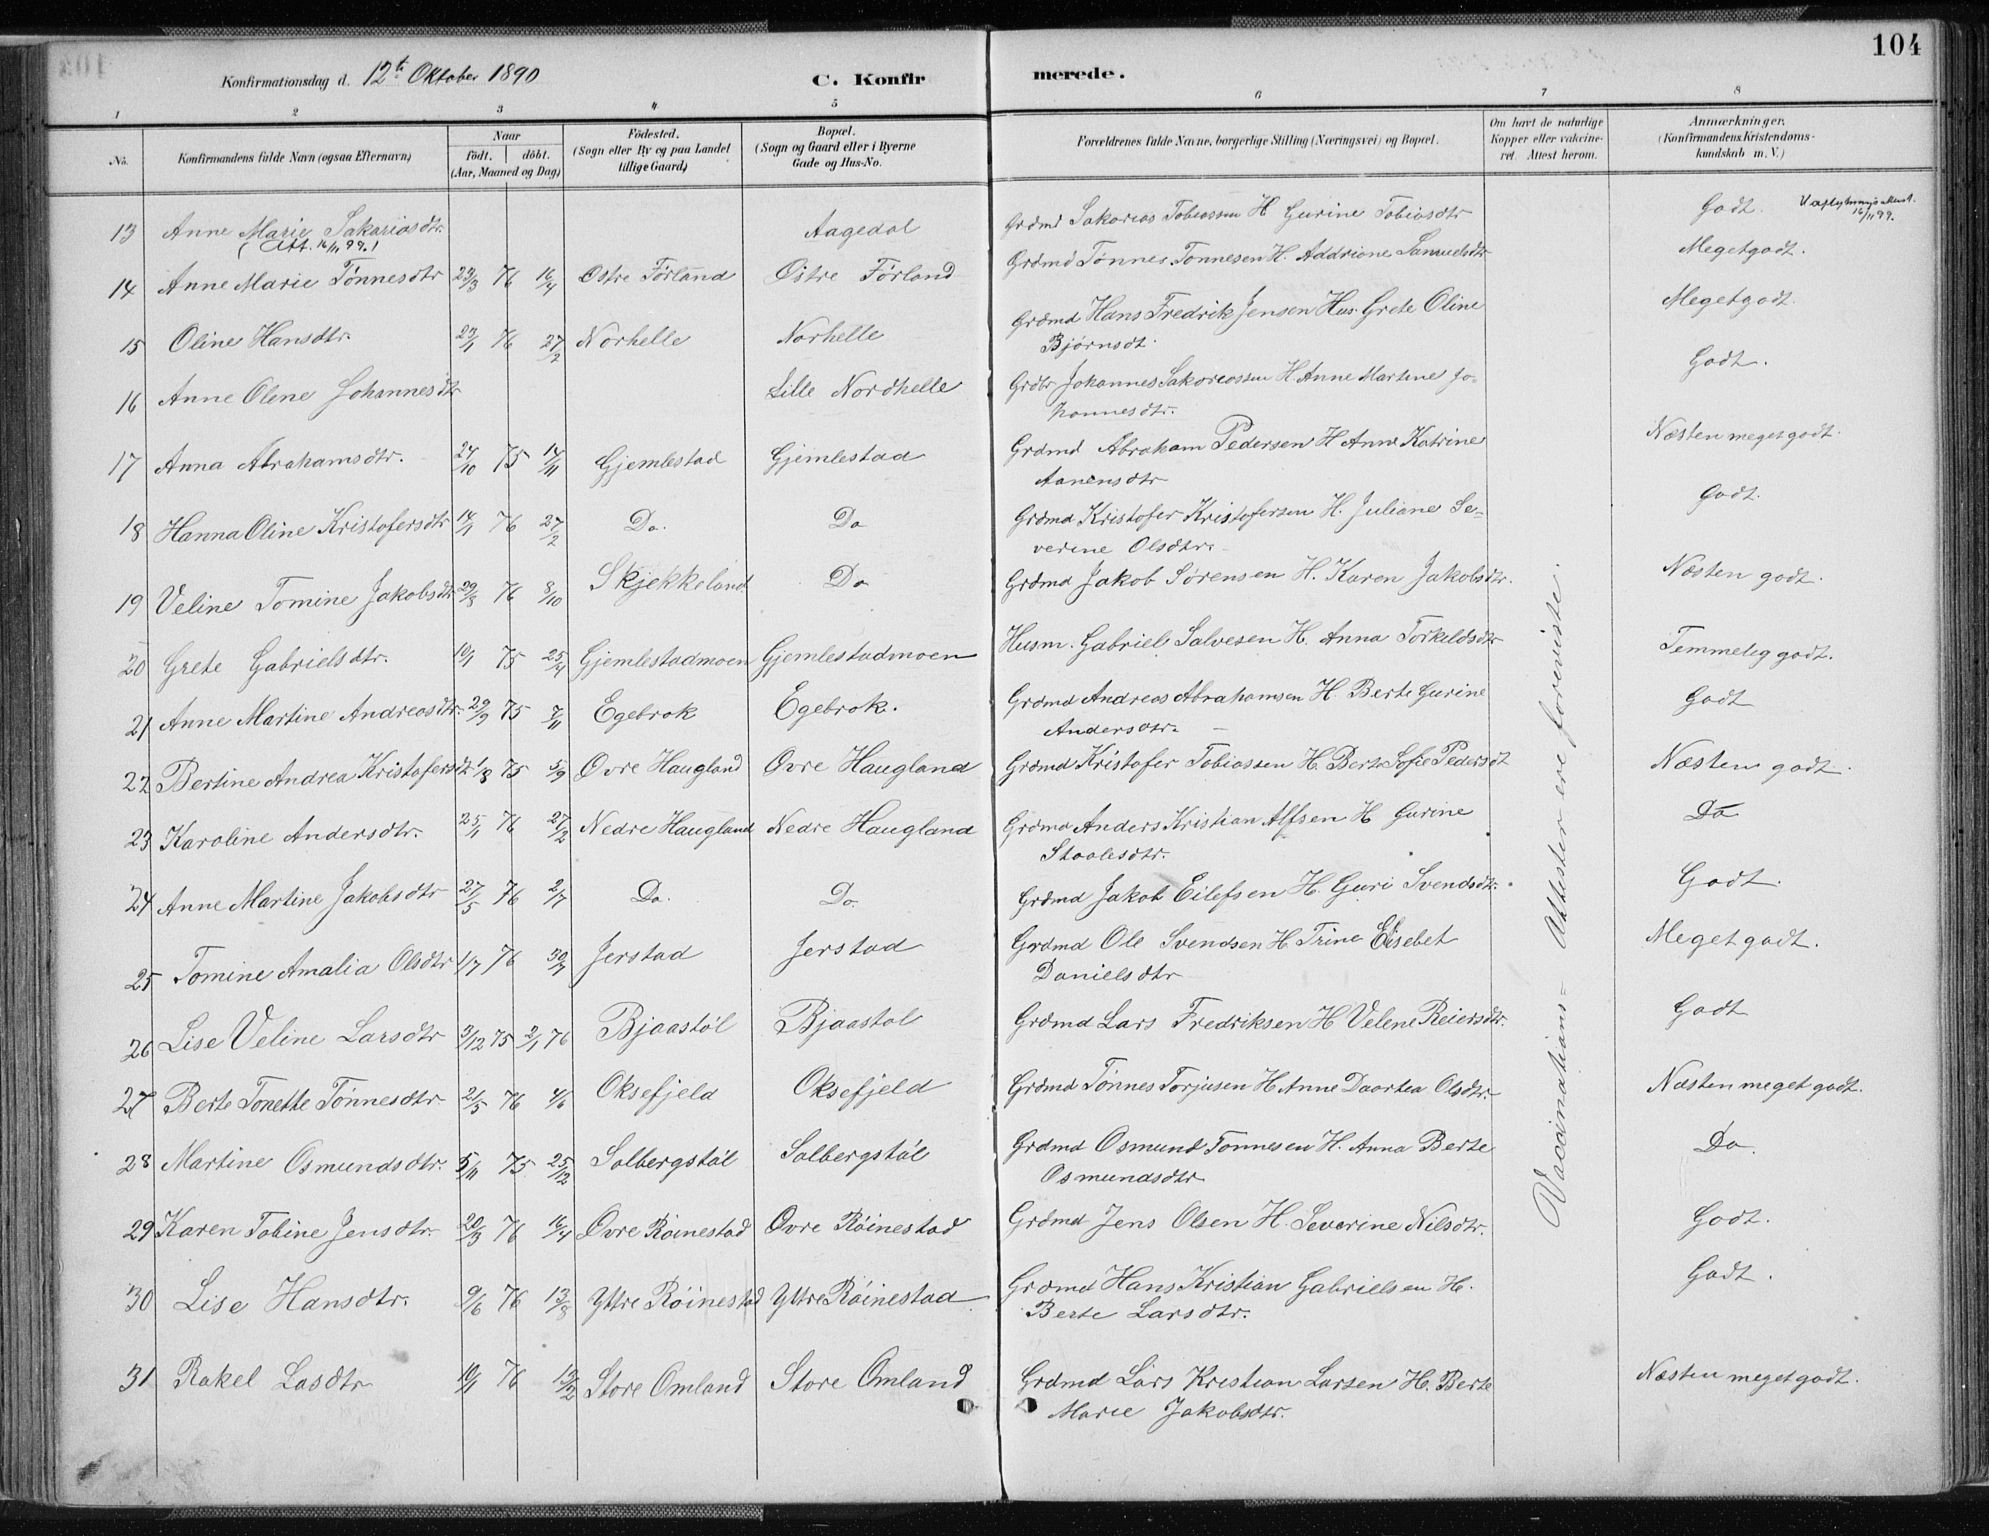 104
Konfirmationsdag d. 12te Oktober 1890 C. Konfirmerede.
1 2 3 4 5 6 7 8
No. Konfirmandens fulde Navn (ogsaa Efternavn) Naar födt. döbt. (Aar, Maaned og Dag) Födested. (Sogn eller By og paa Landet tillige Gaard) Bopæl. (Sogn og Gaard eller i Byerne Gade og Hus-No. Forældrenes fulde Navne, borgerlige Stilling (Næringsvei) og Bopæl. Om havt de naturlige Kopper eller vakcineret. Attest herom. Anmærkninger. (Konfirmandens Kristendomskundskab m. V.)
13 Anne Marie Sakariasdtr. Aagedal Grdmd Sakarias Tobiassen H Gurine Tobiasdtr Godt.
(Att. 16/11 99.) 16/11 99.
14 Anne Marie Tønnesdtr 29/3 76 16/4 Østre Førland Østre Førland Grdmd Tønnes Tønnesen H. Addriane Samuelsdtr Megetgodt.
15 Oline Hansdtr. 23/1 76 27/2 Norhelle Norhelle Grdmd Hans Fredrik Jensen Hus. Grete Oline Megetgodt.
Bjørnsdt.
16 Anne Olene Johannesdtr Lille Nordhelle Johannes Sakariassen H. Anne Martine Jo- Godt.
hannesdtr.
17 Anna Abrahamsdtr. 24/10 75 14/11 Gjemlestad Gjemlestad Grdmd Abraham Pedersen H Anne Katrine Næsten megetgodt.
Aanensdtr
18 Hanna Oline Kristofersdtr 14/1 76 27/2 Do. Do Grdmd Kristofer Kristofersen H. Juliane Se- Godt.
verine Olsdtr.
19 Veline Tomine Jakobsdtr 29/8 76 8/10 Skjekkeland Do Grdmd Jakob Sørensen H. Karen Jakobsdtr. Næsten godt.
20 Grete Gabrielsdtr. 10/1 75 25/4 Gjemlestadmoen Gjemlestadmoen Husm. Gabriel Salvesen H. Anna Torkeldsdtr Temmelig godt.
21 Anne Martine Andreasdtr. 29/9 75 7/11 Egebrok Egebrok. Grdmd Andreas Abrahamsen H. Berte Gurine Godt
Andersdtr.
22 Bertine Andrea Kristofersdtr 1/8 75 5/9 Øvre Haugland Øvre Haugland Grdmd Kristofer Tobiassen H. Berte Sofie Pedersdt Næsten godt.
23 Karoline Andersdtr. 25/1 76 27/2 Nedre Haugland Nedre Haugland Grdmd Anders Kristian Alfsen H Gurine Do
Staalesdtr.
24 Anne Martine Jakobsdtr 27/5 76 2/7 Do. Do. Grdmd Jakob Eilefsen H. Guri Svendsdtr. Godt.
25 Tomine Amalia Olsdtr 1/7 76 30/7 Jerstad Jerstad Grdmd Ole Svendsen H. Trine Elisebet Megetgodt.
Danielsdtr
26 Lise Veline Larsdtr 3/12 75 2/1 76 Bjaastøl Bjaastøl Grdmd Lars Fredriksen H Velene Reiersdtr. Godt
27 Berte Tonette Tønnesdtr 21/5 76 4/6 Oksefjeld Oksefjeld Grdmd Tønnes Torjusen H Anne Daortea Olsdtr. Næsten meget godt.
28 Martine Osmundsdtr. 5/11 75 25/12 Solbergstøl Solbergstøl Grdmd Osmund Tønnesen H. Anna Berte Do.
Osmundsdtr
29 Karen Tobine Jensdtr. 20/3 76 16/4 Øvre Röinestad Øvre Röinestad Grdmd Jens Olsen H. Severine Nilsdtr. Godt.
30 Lise Hansdtr. 9/6 76 13/8 Yttre Röinestad Yttre Röinestad Grdmd Hans Kristian Gabrielsen H. Godt.
Berte Larsdtr.
31 Rakel Lasdtr 10/1 76 13/2 Store Omland Store Omland Grdmd Lars Kristian Larsen H. Berte Næsten megetgodt.
Marie Jakobsdtr.
Vaccinations-Attester ere foreviste.